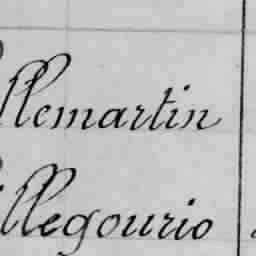 llemartin
illegourio